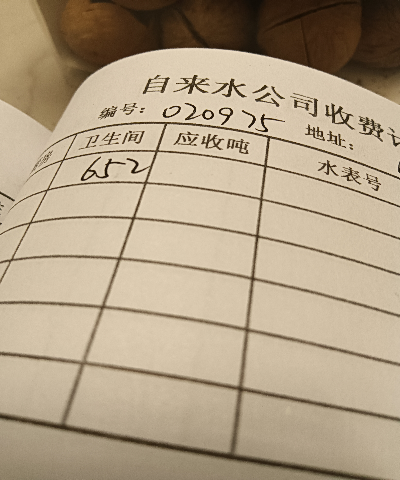 自来水公司收费
编号: 020975 地址:
卫生间 应收吨 水表号
652